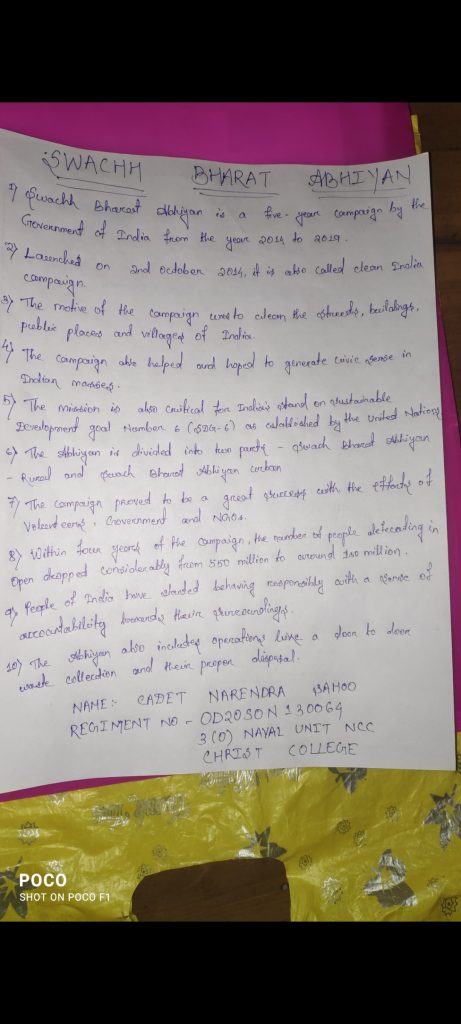 SWACHH BHARAT ABHIYAN
1) Swachh Bharat Abhiyan is a five-year campaign by the
Government of India from the year 2014 to 2019.
2) Launched on 2nd october 2014, it is also called clean India
campaign.
3) The motive of the campaign was to clean the streets, buildings,
public places and villages of India.
4) The campaign also helped and hoped to generate civic sense in
Indian masses.
5) The mission is also critical for India's stand on sustainable
Development goal Number 6 (SDG-6) as established by the United Nations
6) The Abhiyan is divided into two parts - Swach Bharat Abhiyan
- Rural and Swach Bharat Abhiyan urban
7) The campaign proved to be a great success with the efforts of
Volunteers, Government and NGOs.
8) Within four years of the campaign, the number of people defecating in
Open dropped considerably from 550 million to around 100 million.
9) People of India have started behaving responsibly with a sense of
accountability towards their surroundings.
10) The Abhiyan also includes operations like a door to door
waste collection and their proper disposal.
NAME:- CADET NARENDRA SAHOO
REGIMENT NO - OD20SON130064
3(O) NAVAL UNIT NCC
CHRIST COLLEGE
POCO
SHOT ON POCO F1